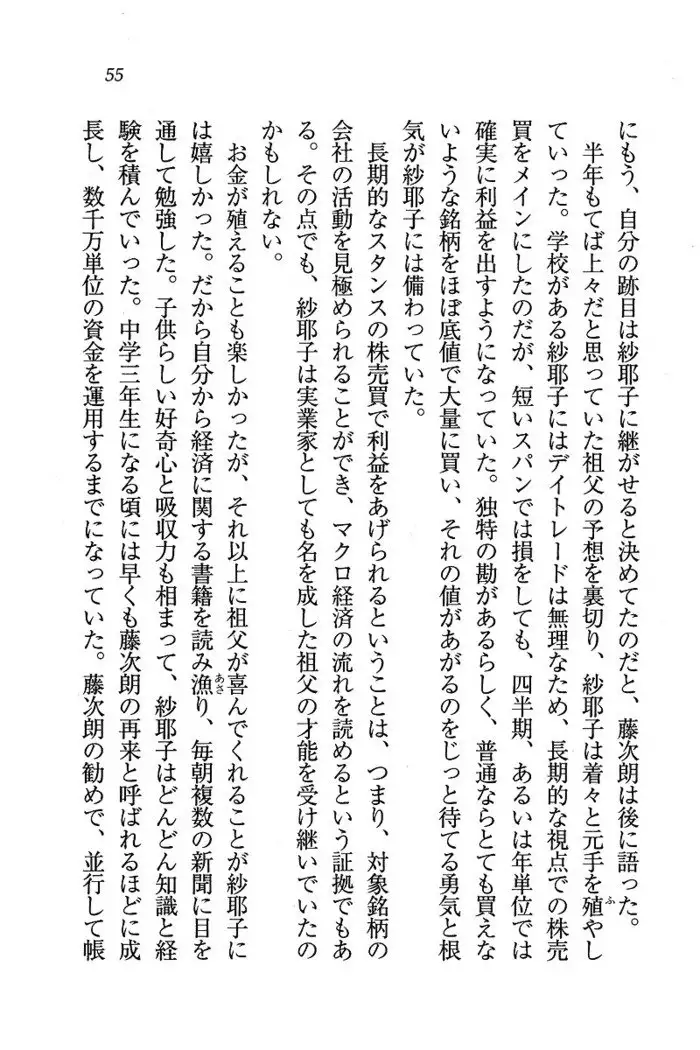 55
にもう、自分の跡目は紗耶子に継がせると決めてたのだと、藤次朗は後に語った。
半年もてば上々だと思っていた祖父の予想を裏切り、紗耶子は着々と元手を殖やし
ていった。学校がある紗耶子にはデイトレードは無理なため、長期的な視点での株売
買をメインにしたのだが、短いスパンでは損をしても、四半期、あるいは年単位では
確実に利益を出すようになっていた。独特の勘があるらしく、普通ならとても買えな
いような銘柄をほぼ底値で大量に買い、それの値があがるのをじっと待てる勇気と根
気が紗耶子には備わっていた。
長期的なスタンスの株売買で利益をあげられるということは、つまり、対象銘柄の
会社の活動を見極められることができ、マクロ経済の流れを読めるという証拠でもあ
る。その点でも、紗耶子は実業家としても名を成した祖父の才能を受け継いでいたの
かもしれない。
お金が殖えることも楽しかったが、それ以上に祖父が喜んでくれることが紗耶子に
は嬉しかった。だから自分から経済に関する書籍を読み漁り、毎朝複数の新聞に目を
通して勉強した。子供らしい好奇心と吸収力も相まって、紗耶子はどんどん知識と経
験を積んでいった。中学三年生になる頃には早くも藤次朗の再来と呼ばれるほどに成
長し、数千万単位の資金を運用するまでになっていた。藤次朗の勧めで、並行して帳